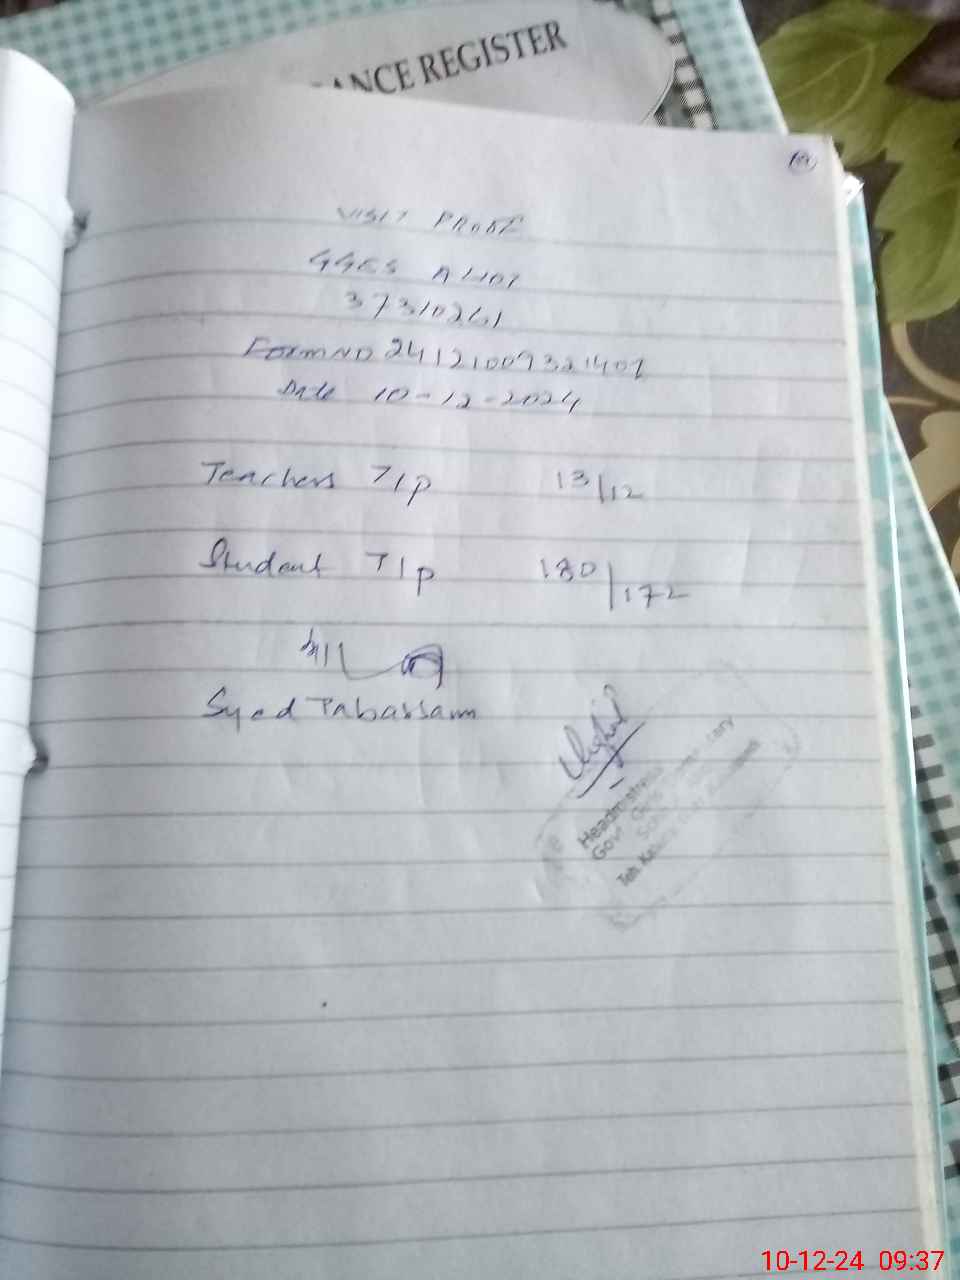 ANCE REGISTER
VISIT PROBE
GGES
37310261
Form NO 24121009321401
Date 10-12-2024
Teachers T/p 13/12
Student T/p 180/172
Syed Tabassam
Headmistress
Govt Girls
Teh
10-12-24 09:37